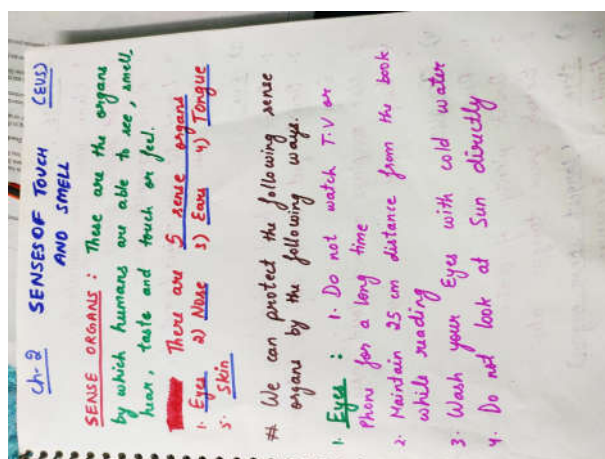 Ch-2 SENSES OF TOUCH (EVS)
AND SMELL
SENSE ORGANS : These are the organs
by which humans are able to see, smell,
hear, taste and touch or feel.
There are 5 sense organs
1. Eyes 2) Nose 3) Ears 4) Tongue
5. Skin
# We can protect the following sense
organs by the following ways.
1. Eyes : 1. Do not watch T.V or
Phone for a long time
2. Maintain 25 cm distance from the book
while reading
3. Wash your Eyes with cold water
4. Do not look at Sun directly